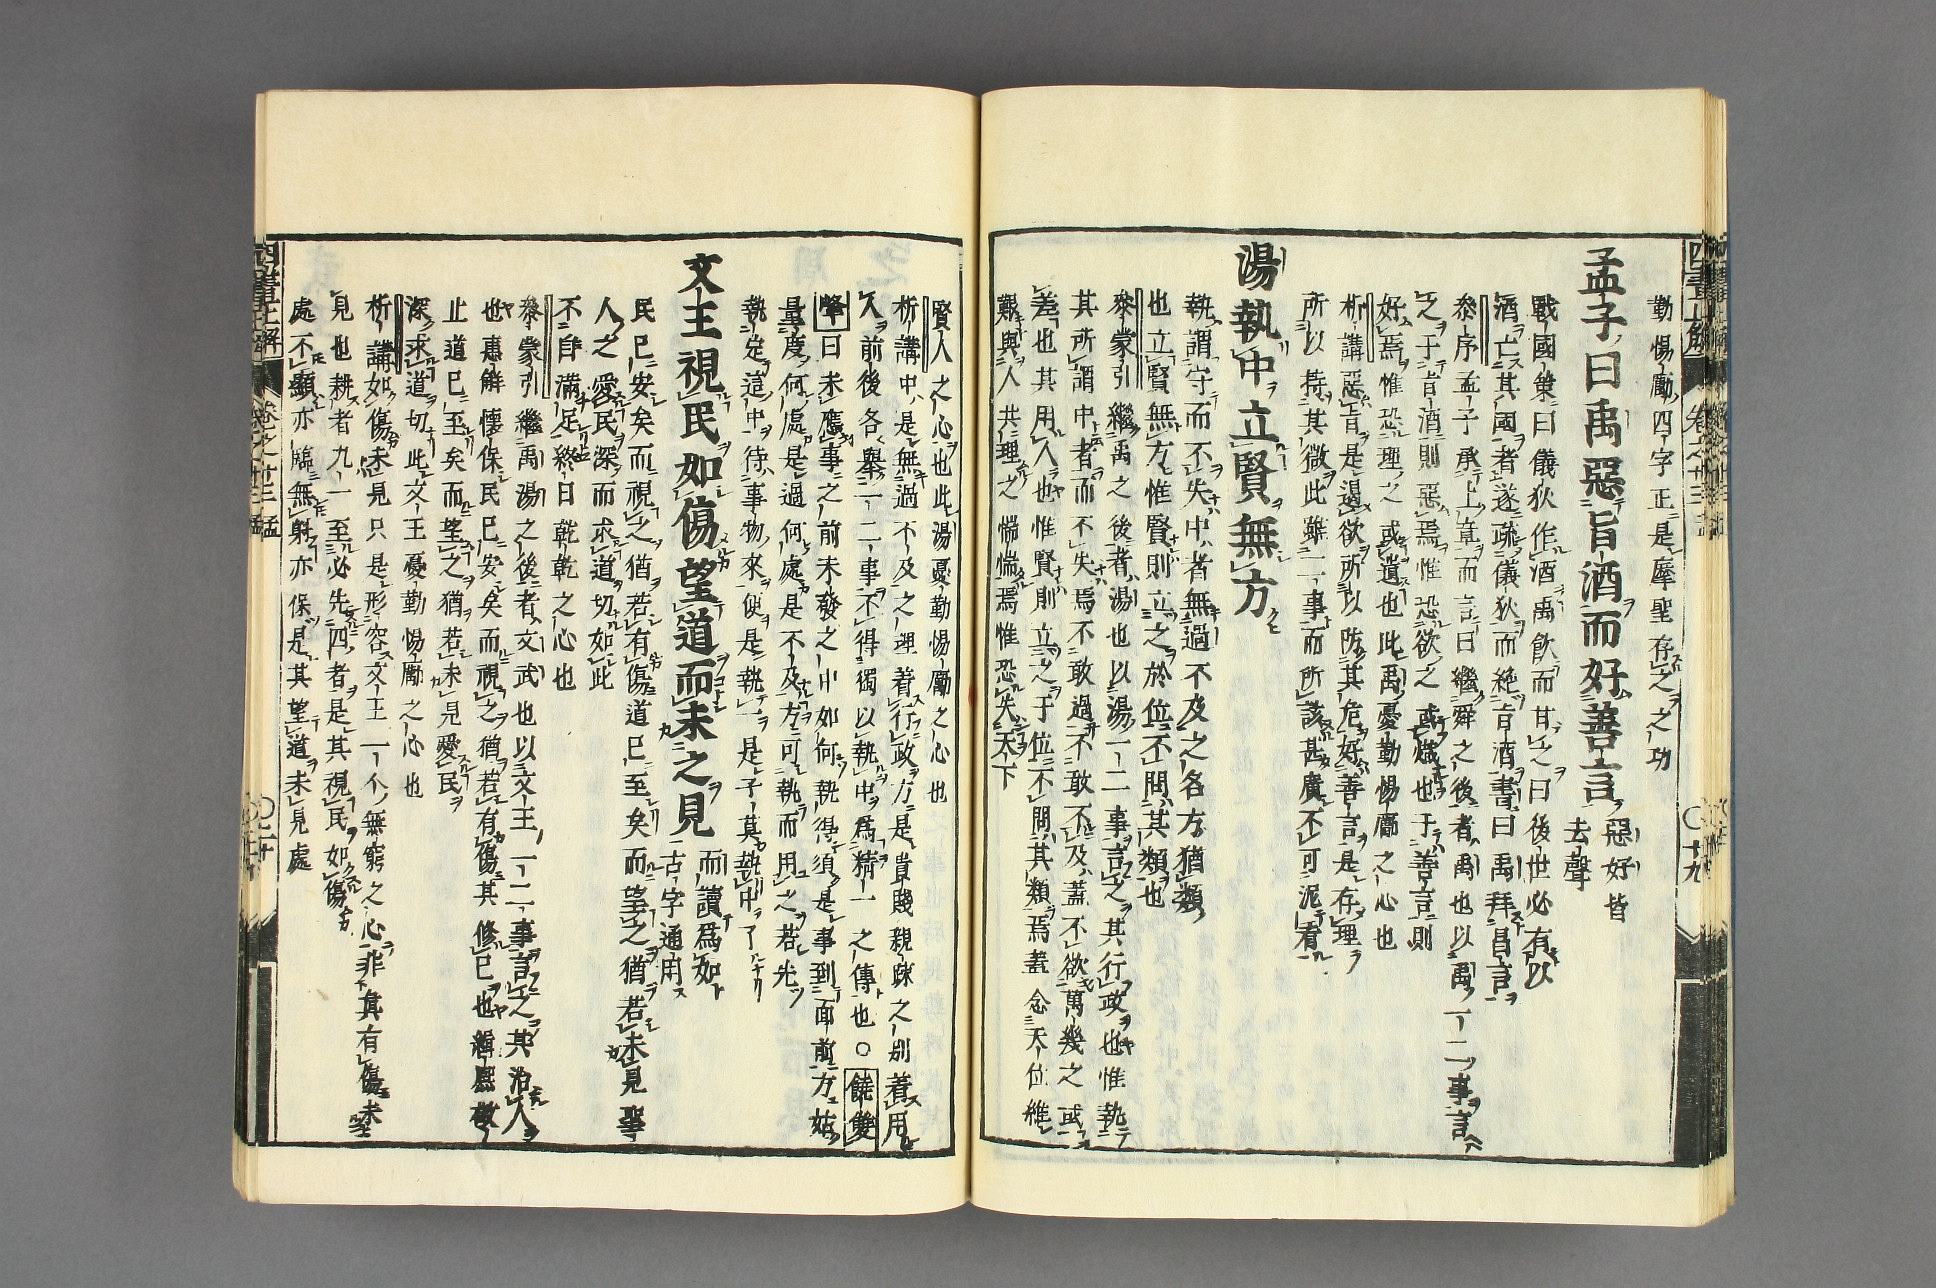 勤惕勵四字正是羣聖存之之功
孟子曰禹惡旨酒而好善言惡好皆去聲
戰國策曰儀狄作酒禹飲而甘之曰後世必有以
酒亡其國者遂疏儀狄而絕旨酒書曰禹拜昌言
參序孟子承上章而言曰繼舜之後者禹也以禹一二事言
之于旨酒則惡焉惟恐欲之或熾也于善言則
好焉惟恐理之或遺也此禹憂勤惕厲之心也
析講惡旨是遏欲所以防其危好善言是存理
所以持其微此雖一事而所該甚廣不可泥看
湯執中立賢無方
執謂守而不失中者無過不及之名方猶類
也立賢無方惟賢則立之於位不問其類也
參蒙引繼禹之後者湯也以湯一二事言之其行政也惟執
其所謂中者而不失焉不敢過不敢不及蓋不欲萬幾之或
差也其用人也惟賢則立之于位不問其類焉蓋念天位維
艱與人共理之惴惴焉惟恐失天下
賢人之心也此湯憂勤惕勵之心也
析講中是無過不及之理着行政方是貴賤親疎之別着用
人前後各舉一二事不得獨以執中爲精一之傳也○饒雙
峰曰未應事之前未發之中如何執得須是事到面前方姑
量度何處是過何處是不及方可執而用之若先
執定這中待事物來便是執一是子莫執中了
文王視民如傷望道而未之見而讀爲如古字通用
民已安矣而視之猶若有傷道已至矣而望之猶若未見聖
人之愛民深而求道切如此
不自滿足終日乾乾之心也
參蒙引繼禹湯之後者文武也以文王一二事言之其治人
也惠鮮懷保民已安矣而視之猶若有傷其修己也緝熙敬
止道已至矣而望之猶若未見愛民
深求道切此文王憂勤惕勵之心也
析講如傷未見只是形容文王一个無窮之心非真有傷未
見也耕者九一至必先四者是其視民如傷
處不顯亦臨無射亦保是其望道未見處
四書正解
卷之廿三
孟